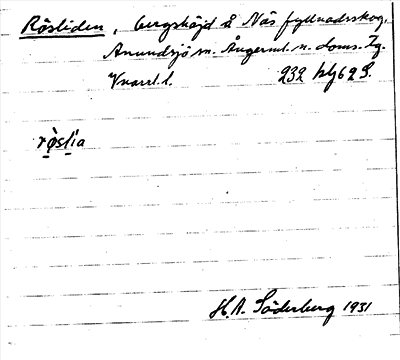 Rösliden, bergshöjd å Näs fyllnadsskog,
Anundsjö sn. Ångerml. n. doms. Zg.
232 blj 62 S.
röslia
H.A. Söderberg 1931